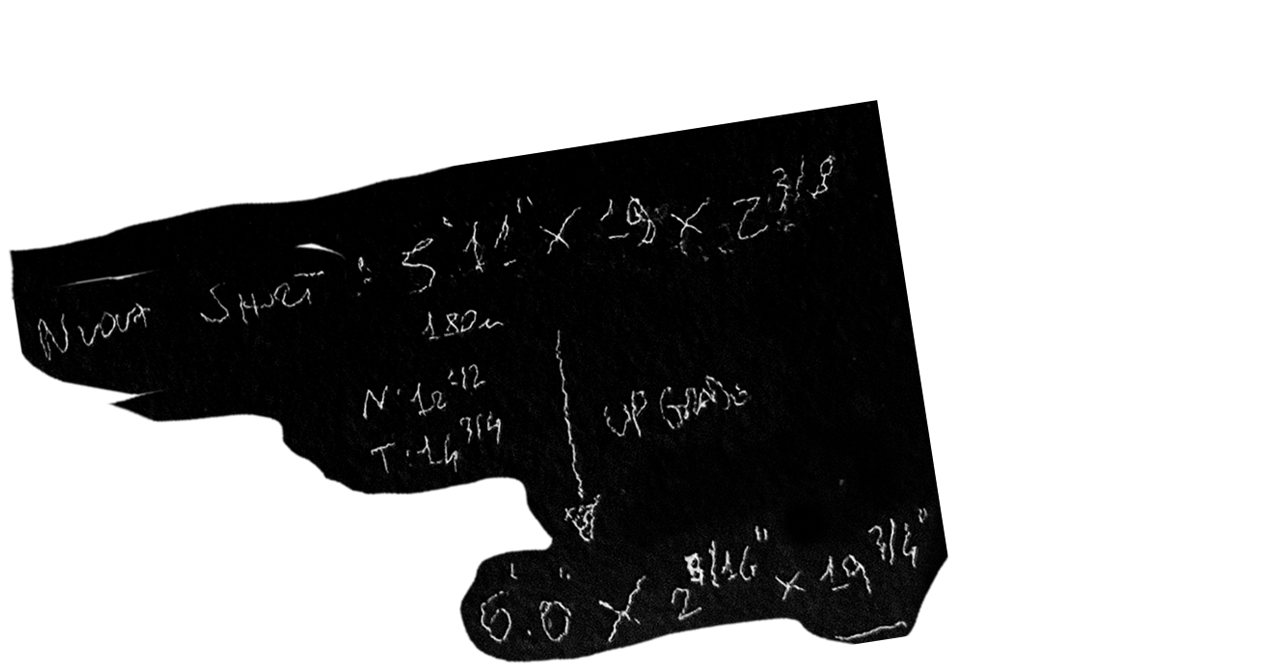 NUOVA SHORT : 5'11" X 19 X 2 3/8
180
N: 12 1/2
T: 14 3/4
UPGRADE
6'.0" X 2 9/16" X 19 3/4"